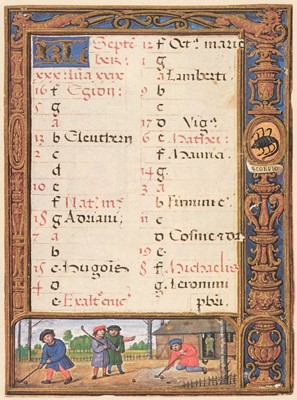 KL Septēber
xxx · lūa xxix
16 f Egidii
5 g
a
13 b Eleuthern
2 c
d
10 e
f Nat
18 g Adriani
7 a
b
15 c Hugōis
4 d
e Exalt
12 f Oct marie
1 g
a Lamberti
9 b
c
17 d Vig
6 e Mathei
f Mauricii
14 g
3 a
b Firmini
11 c
d Cosme
19 e
8 f Michaelis
g Jeronimi
pbri
SCORPIO